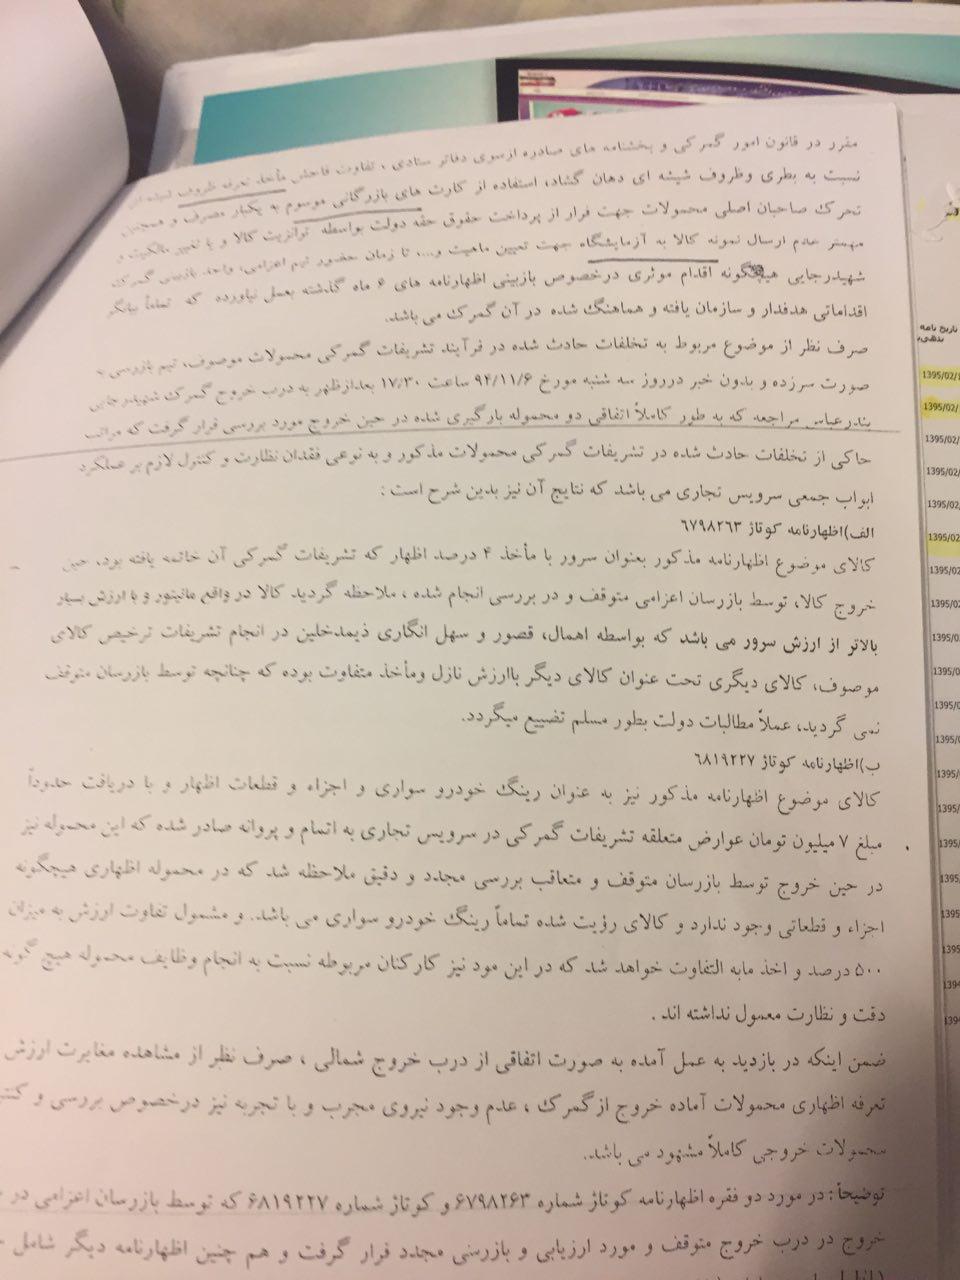 مقرر در قانون امور گمرکی و بخشنامه های صادره ازسوی دفاتر ستادی ، تفاوت فاحش مأخذ تعرفه ظروف
نسبت به بطری وظروف شیشه ای دهان گشاد، استفاده از کارت های بازرگانی موسوم به یکبار مصرف و همچنین
تحرک صاحبان اصلی محمولات جهت فرار از پرداخت حقوق حقه دولت بواسطه ترانزیت کالا و یا تغییر مالکیت و
مهمتر عدم ارسال نمونه کالا به آزمایشگاه جهت تعیین ماهیت و... تا زمان حضور تیم اعزامی، واحد بازبینی گمرک
شهیدرجایی هیچگونه اقدام موثری درخصوص بازبینی اظهارنامه های ۶ ماه گذشته بعمل نیاورده که تماماً بیانگر
اقداماتی هدفدار و سازمان یافته و هماهنگ شده در آن گمرک می باشد.
صرف نظر از موضوع مربوط به تخلفات حادث شده در فرآیند تشریفات گمرکی محمولات موصوف، تیم بازرسی به
صورت سرزده و بدون خبر درروز سه شنبه مورخ ۹۴/۱۱/۶ ساعت ۱۷:۳۰ بعدازظهر به درب خروج گمرک شهیدرجایی
بندرعباس مراجعه که به طور کاملاً اتفاقی دو محموله بارگیری شده در حین خروج مورد بررسی قرار گرفت که مراتب
حاکی از تخلفات حادث شده در تشریفات گمرکی محمولات مذکور و به نوعی فقدان نظارت و کنترل لازم بر عملکرد
ابواب جمعی سرویس تجاری می باشد که نتایج آن نیز بدین شرح است :
الف)اظهارنامه کوتاژ ۶۷۹۸۲۶۳
کالای موضوع اظهارنامه مذکور بعنوان سرور با مأخذ ۴ درصد اظهار که تشریفات گمرکی آن خاتمه یافته بود، حین
خروج کالا، توسط بازرسان اعزامی متوقف و در بررسی انجام شده ، ملاحظه گردید کالا در واقع مانیتور و با ارزش بسیار
بالاتر از ارزش سرور می باشد که بواسطه اهمال، قصور و سهل انگاری ذیمدخلین در انجام تشریفات ترخیص کالای
موصوف، کالای دیگری تحت عنوان کالای دیگر باارزش نازل ومأخذ متفاوت بوده که چنانچه توسط بازرسان متوقف
نمی گردید، عملاً مطالبات دولت بطور مسلم تضییع میگردد.
ب)اظهارنامه کوتاژ ۶۸۱۹۲۲۷
کالای موضوع اظهارنامه مذکور نیز به عنوان رینگ خودرو سواری و اجزاء و قطعات اظهار و با دریافت حدوداً
مبلغ ۷ میلیون تومان عوارض متعلقه تشریفات گمرکی در سرویس تجاری به اتمام و پروانه صادر شده که این محموله نیز
در حین خروج توسط بازرسان متوقف و متعاقب بررسی مجدد و دقیق ملاحظه شد که در محموله اظهاری هیچگونه
اجزاء و قطعاتی وجود ندارد و کالای رؤیت شده تماماً رینگ خودرو سواری می باشد. و مشمول تفاوت ارزش به میزان
۵۰۰ درصد و اخذ مابه التفاوت خواهد شد که در این مود نیز کارکنان مربوطه نسبت به انجام وظایف محموله هیچ گونه
دقت و نظارت معمول نداشته اند .
ضمن اینکه در بازدید به عمل آمده به صورت اتفاقی از درب خروج شمالی ، صرف نظر از مشاهده مغایرت ارزش
تعرفه اظهاری محمولات آماده خروج ازگمرک ، عدم وجود نیروی مجرب و با تجربه نیز درخصوص بررسی و
محمولات خروجی کاملاً مشهود می باشد.
توضیحاً : در مورد دو فقره اظهارنامه کوتاژ شماره ۶۷۹۸۲۶۳ و کوتاژ شماره ۶۸۱۹۲۲۷ که توسط بازرسان اعزامی در
خروج در درب خروج متوقف و مورد ارزیابی و بازرسی مجدد قرار گرفت و هم چنین اظهارنامه دیگر شامل
تاریخ نامه
1395/02/1
1395/02/
1395/02/
1395/02/
1395/02/
1395/02
1395/02
1395/02
1395/0
1395/0
1395/0
1395/0
1395/0
1395/
1395/
1395
1395
1395
1394
1394